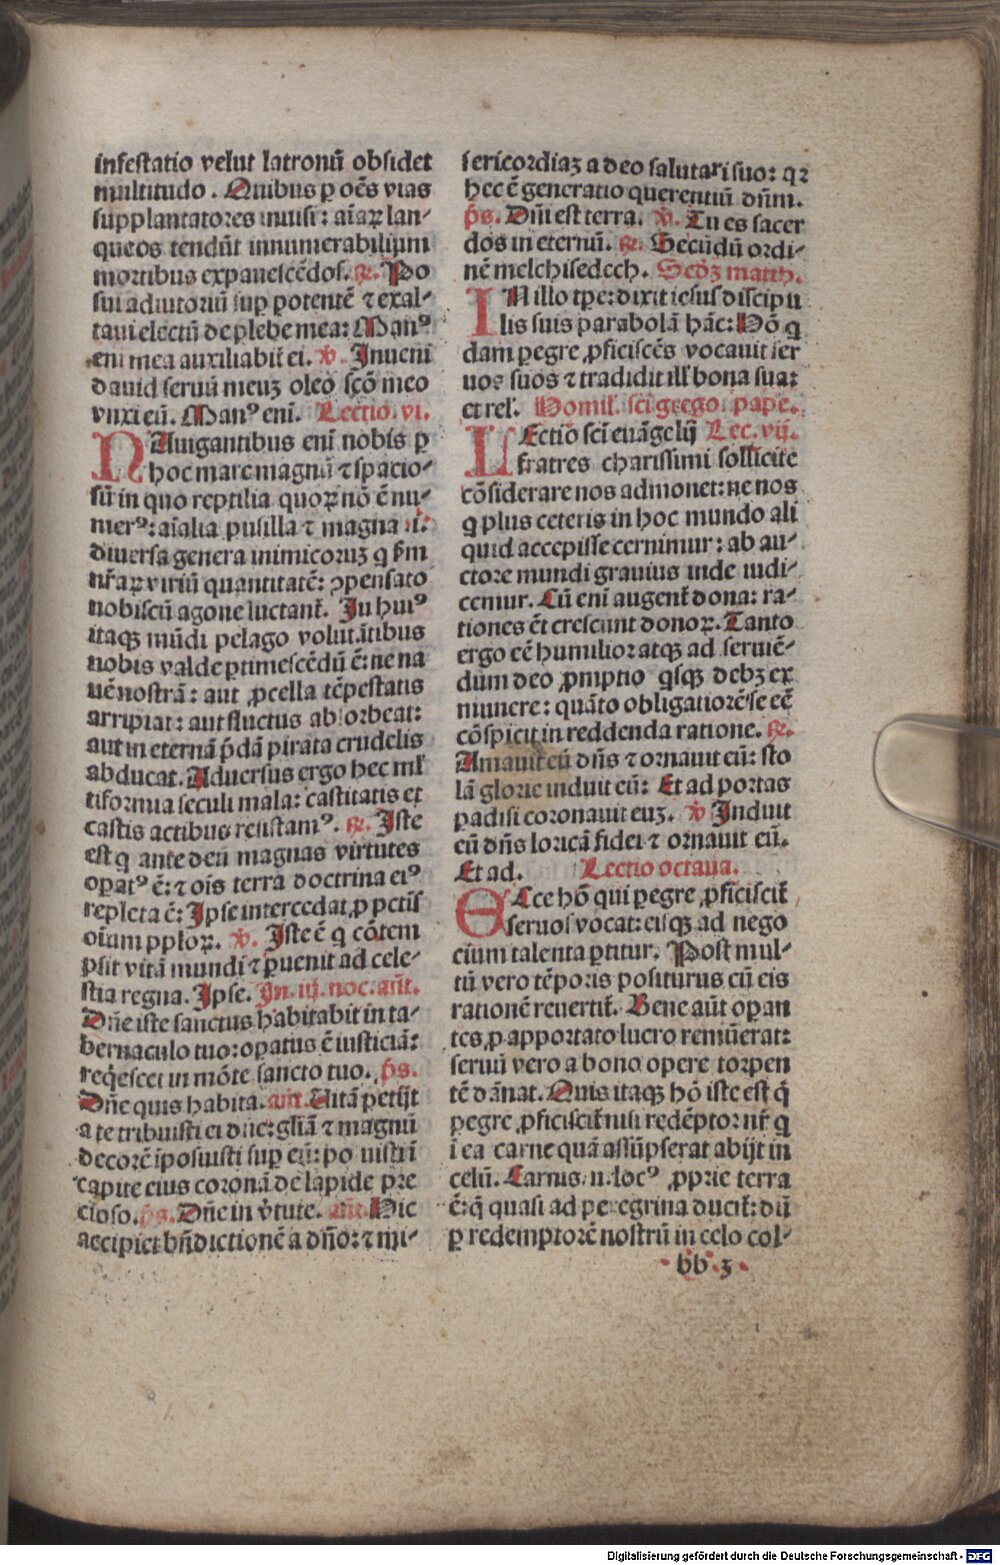 infestatio velut latronū obsidet
multitudo. Quibus ꝑ oēs vias
supplantatores inuisi: aīaꝝ lan-
queos tendūt innumerabilium
mortibus expauescēdos. ℟. Po
sui adiutoriū sup potentē ⁊ exal-
taui electū de plebe mea: Manꝰ
em mea auxiliabit̄ ei. ℣. Inueni
dauid seruū meuꝫ oleo scō meo
vnxi eū. Manꝰ enī. Lectio. vi.
NAuigantibus enī nobis ꝑ
hoc mare magnū ⁊ spacio-
sū in quo reptilia quoꝝ nō ē nu-
merꝰ: aīalia pusilla ⁊ magna .i.
diuersa genera inimicoruꝫ q ẜm
nr̄aꝝ viriū quantitatē: ꝯpensato
nobiscū agone luctant̄. In huiꝰ
itaqꝫ mūdi pelago volutātibus
nobis valde ꝑtimescēdū ē: ne na
uē nostrā: aut ꝓcella tēpestatis
arripiat: aut fluctus absorbeat:
aut in eternā p̄dā pirata crudelis
abducat. Aduersus ergo hec ml̄
tiformia seculi mala: castitatis et
castis actibus reiistamꝰ. ℟. Iste
est q ante deū magnas virtutes
opatꝰ ē: ⁊ oīs terra doctrina eiꝰ
repleta ē: Ipse intercedat ꝓ petīs
oīum pploꝝ. ℣. Iste ē q cōtem
psit vitā mundi ⁊ ꝑuenit ad cele-
stia regna. Ipse. In .iij. noc. añt.
Dn̄e iste sanctus habitabit in ta-
bernaculo tuo: opatus ē iusticiā:
reqescet in mōte sancto tuo. p̄s.
Dn̄e quis habita. añt. Uitā petijt
a te tribuisti ei dn̄e: gl̄iā ⁊ magnū
decorē iposuisti sup eū: posuisti ī
capite eius coronā de lapide pre
cioso. p̄s. Dn̄e in v̄tute. añt. Hic
accipiet bn̄dictionē a dn̄o: ⁊ mi-
sericordiaꝫ a deo salutari suo: qꝛ
hec ē generatio querentiū dn̄m.
p̄s. Dn̄i est terra. ℣. Tu es sacer
dos in eternū. ℟. Secūdū ordi-
nē melchisedech. Scd̄ꝫ matth.
IN illo tꝑe: dixit iesus discipu
lis suis parabolā hāc: Hō q
dam ꝑegre ꝓficiscēs vocauit ser
uos suos ⁊ tradidit ill̄ bona sua:
et rel̄. Homil̄. sci grego. pape.
LEctio sci euāgelij Lec. vij.
fratres charissimi sollicite
cōsiderare nos admonet: ne nos
q plus ceteris in hoc mundo ali
quid accepisse cernimur: ab au-
ctore mundi grauius inde iudi-
cemur. Cū enī augent̄ dona: ra-
tiones ēt crescunt donoꝝ. Tanto
ergo eē humilior atqꝫ ad seruiē-
dum deo ꝓmptio qsqꝫ debꝫ ex
munere: quāto obligatiorē se eē
cōspicit in reddenda ratione. ℟.
Amauit eū dn̄s ⁊ ornauit eū: sto
lā glorie induit eū: Et ad portas
padisi coronauit euꝫ. ℣. Induit
eū dn̄s loricā fidei ⁊ ornauit eū.
Et ad. Lectio octaua.
ECce hō qui ꝑegre ꝓficiscit̄
seruos vocat: eisqꝫ ad nego
cium talenta ꝑtitur. Post mul-
tū vero tēporis positurus cū eis
rationē reuertit̄. Bene aūt opan
tes ꝓ apportato lucro remūerat:
seruū vero a bono opere torpen
tē dānat. Quis itaqꝫ hō iste est q̄
ꝑegre ꝓficiscit̄ nisi redēptor nr̄ q
ī ea carne quā assūpserat abijt in
celū. Carnis .n. locꝰ ꝓprie terra
ē: q̄ quasi ad peregrina ducit̄: dū
ꝑ redemptorē nostrū in celo col-
bb .3.
Digitalisierung gefördert durch die Deutsche Forschungsgemeinschaft - DFG